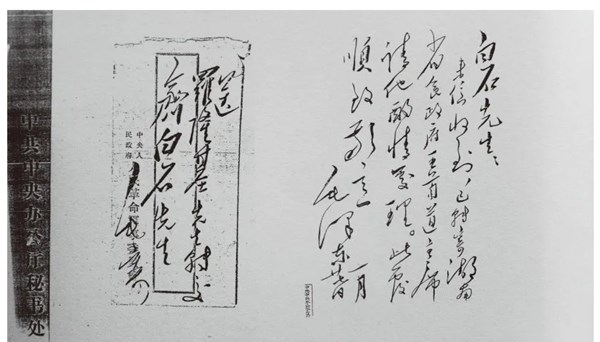 白石先生：
来信收到，已转寄湖南
省人民政府王首道主席
请他酌情处理。此覆
顺致敬意
毛泽东
一月
送
羅隆基先生转交
齊白石先生
中央人
民政府
革命
毛
中共中央办公厅秘书处